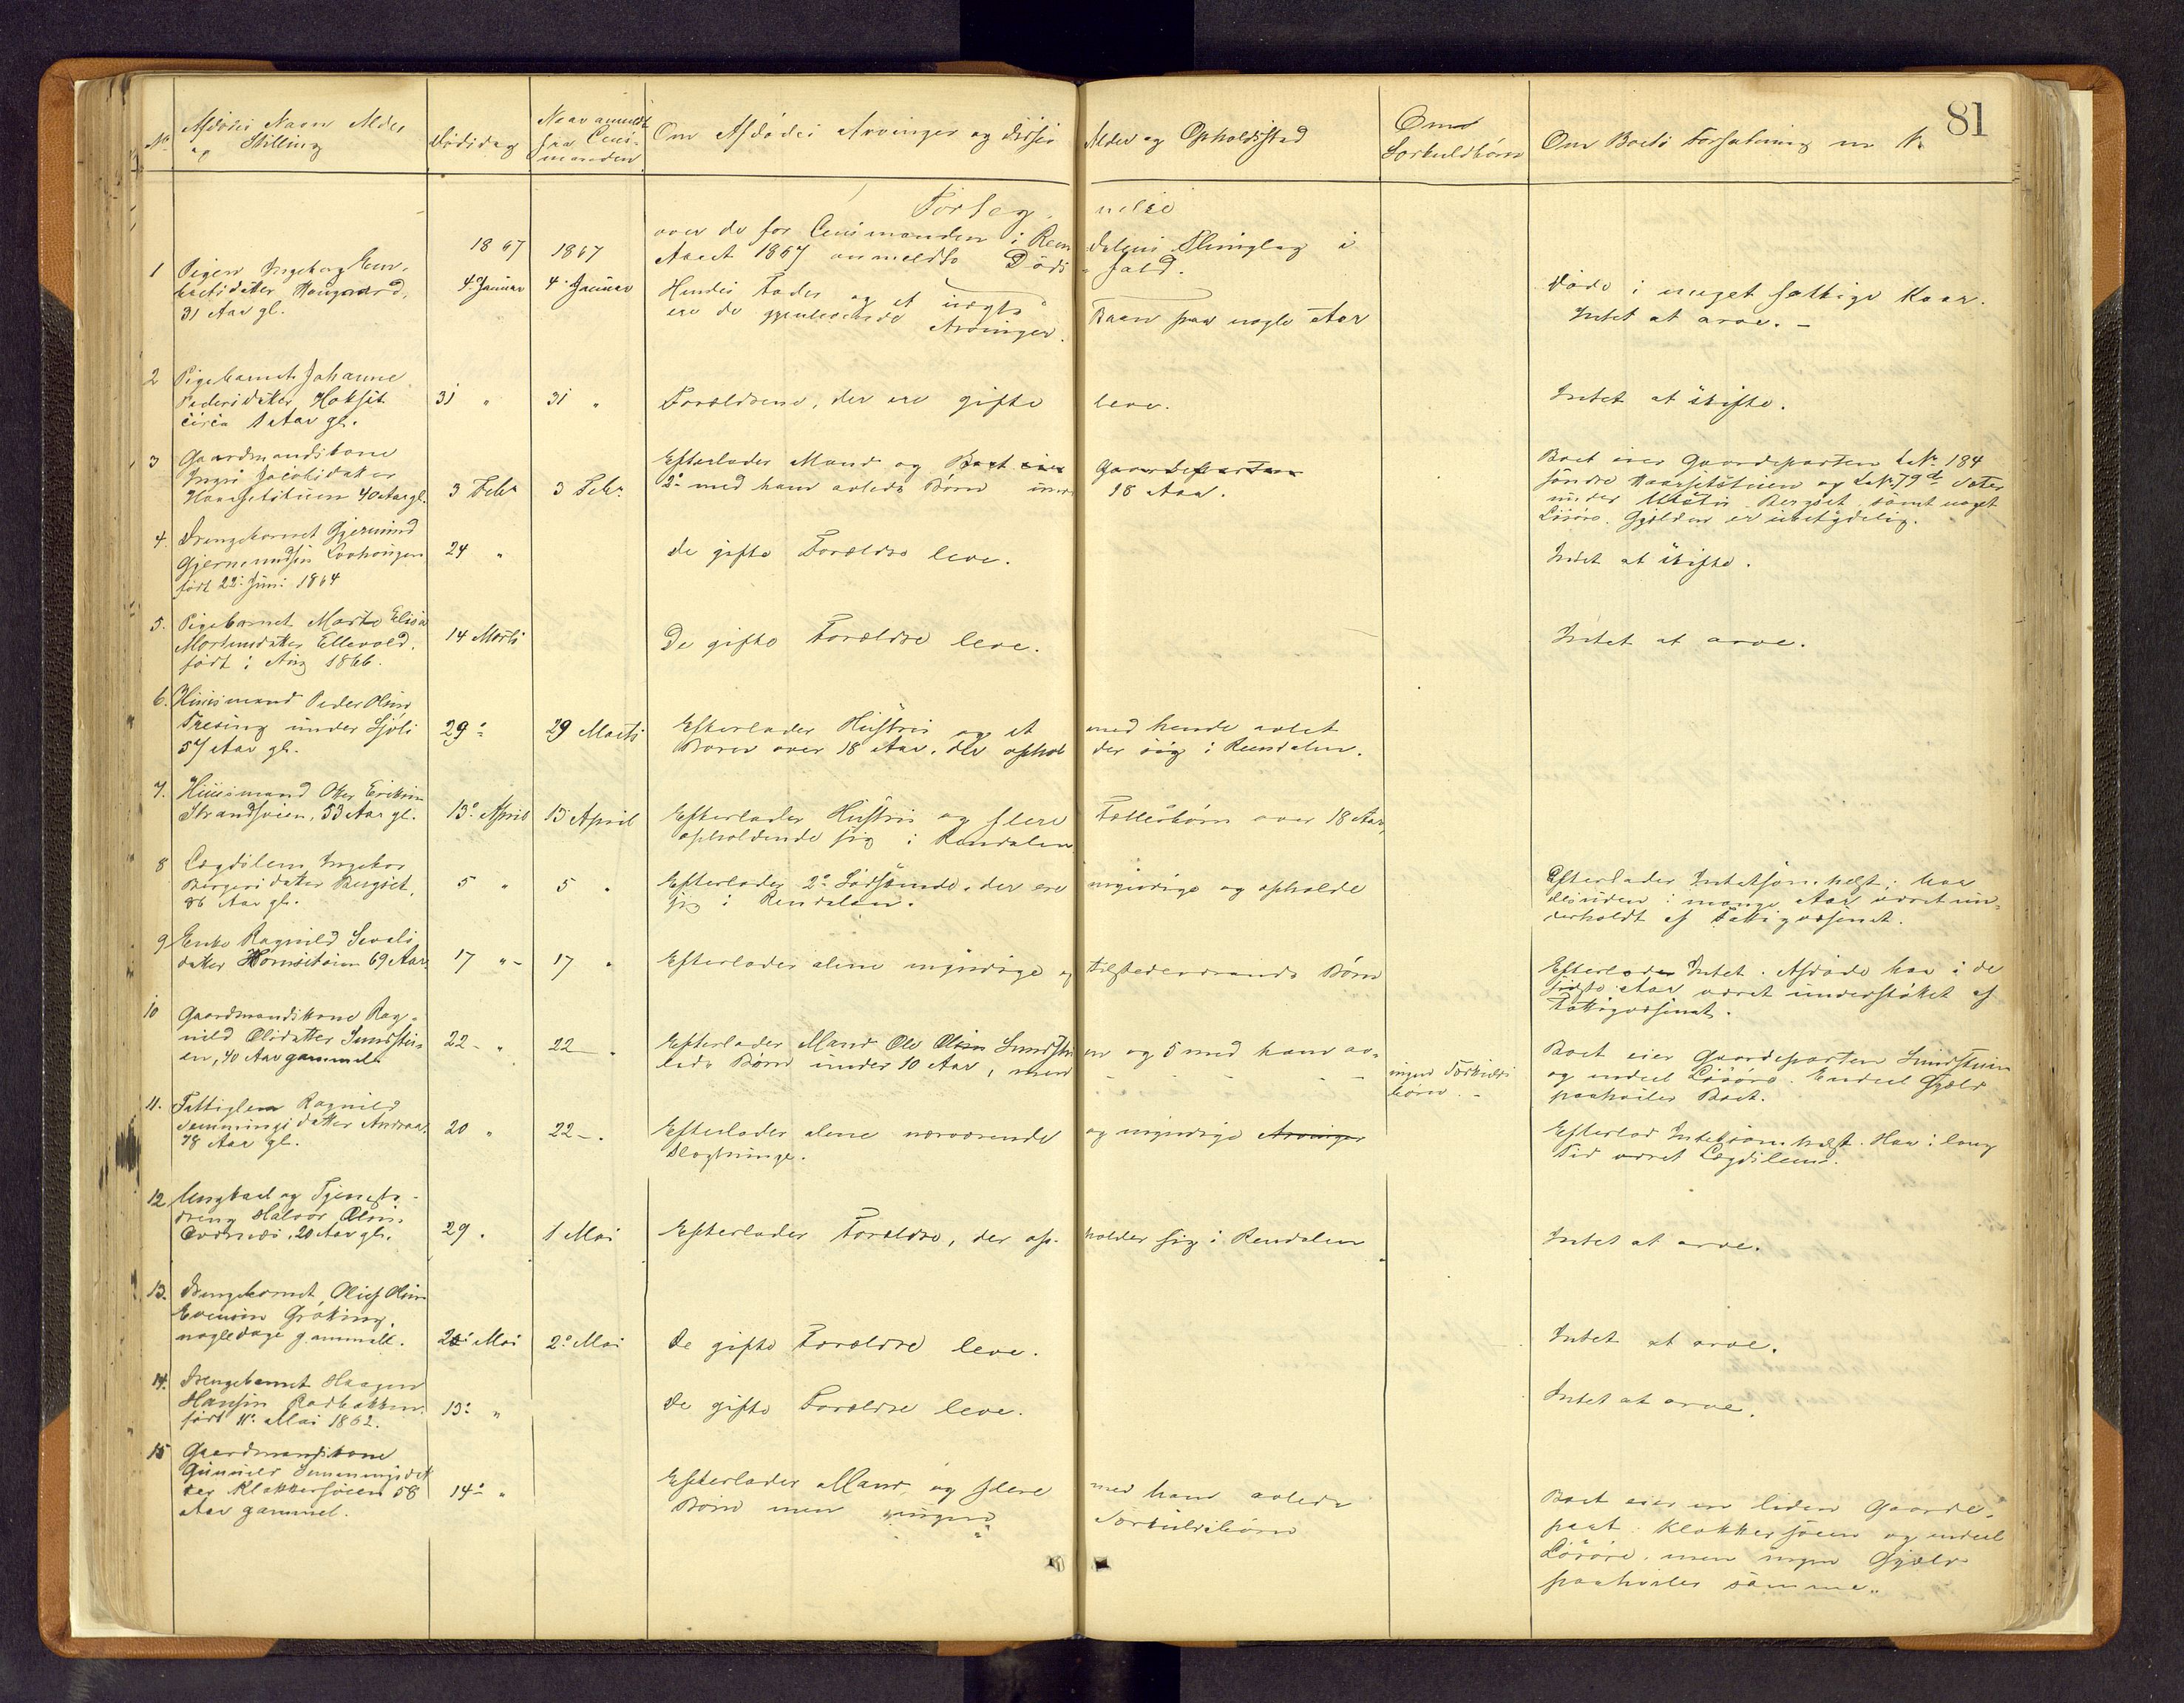 81
No Afdødes Navn Alder
og Stilling
Dødsdag
Naar anmeldt
fra Lens-
manden
Om Afdødes Arvinger og disses Alder og Opholdssted
Om
Særkuldbørn
Om Boets Forfatning m. v.
Fortegnelse
over de for Lensmanden i Rendalens Thinglag i
Aaret 1867 anmeldte Dødsfald.
1867 1867
1 Pigen Ingeborg
datter Haugaard,
31 Aar gl.
4. Januar 4. Januar
Hendes Fader og et uægte Barn paa nogle Aar
ere de gjenlevende Arvinger.
Døde i meget fattige Kaar.
Intet at arve. -
2 Pigebarnet Johanne
Pedersdatter Hokset
circa 1 Aar gl.
31 " 31 "
Forældrene, der ere gifte leve.
Intet at skifte.
3 Gaardmandskone
Jacobsdatter
40 Aar gl.
3 Febr 3 Febr.
Efterlader Mand og Boet eier Gaardeparten
2de med ham avlede Børn under 18 Aar.
Boet eier Gaardeparten L.No. 184
søndre og L.No. 79
under Bergset samt noget
Løsøre. Gjælden er ubetydelig.
4. Drengebarnet Gjermund
Gjermundsen
født 22. Juni 1864
24 "
De gifte Forældre leve.
Intet at skifte.
5. Pigebarnet Marte Elise
Mortensdatter Ellevold,
født i Aug 1866.
14 Marts
De gifte Forældre leve.
Intet at arve.
6. Huusmand Peder Olsen
Fresing under Sjøli
57 Aar gl.
29. 29 Marts
Efterlader Hustru og et med hende avlet
Barn over 18 Aar, der opholder sig i Rendalen.
7. Huusmand Ole Eriksen
Strandsveen, 53 Aar gl.
13. April 13 April
Efterlader Hustru og flere Fællesbørn over 18 Aar,
opholdende sig i Rendalen
8 Lægdslem Ingebor
Bergersdatter Bergset,
86 Aar gl.
5 " 5 "
Efterlader 2de Sødskende, der ere myndige og opholde
sig i Rendalen.
Efterlader Intetsomhelst; har
desuden i mange Aar været un-
derholdt af Fattigvæsenet.
9 Enke Ragnild Sevals
datter Hornsetsveen 69 Aar
17 " - 17 "
Efterlader alene myndige og tilstedeværende Børn
Efterlader Intet. Afdøde har i de
sidste Aar været understøttet af
Fattigvæsenet.
10 Gaardmandskone Rag-
nild Olsdatter Sundstu-
en, 40 Aar gammel
22 - " 22 - "
Efterlader Mand Ole Olsen Sundstuen og 5 med ham av-
lede Børn under 10 Aar, men
ingen Særkulds
børn. -
Boet eier Gaardeparten Sundstuen
og endeel Løsøre. Endeel Gjæld
paahviler Boet.
11. Fattiglem Ragnild
Semmingsdatter Andraa.
78 Aar gl.
20 " 22 - .
Efterlader alene nærværende og myndige Arvinger
Slægtninge.
Efterlod Intetsomhelst. Har i lang
Tid været Lægdslem.
12 Ungkarl og Tjeneste-
dreng Halvor Olsen
20 Aar gl.
29 . 1 Mai
Efterlader Forældre, der opholder sig i Rendalen
Intet at arve.
13. Drengebarnet Oluf Olsen
Evensen Grøking,
nogle dage gammelt.
2. Mai 2. Mai
De gifte Forældre leve.
Intet at arve.
14. Drengebarnet Haagen
Hansen
født 11. Mai 1862.
13. "
De gifte Forældre leve.
Intet at arve.
15 Gaardmandskone
Gunnild Semmingsdat
ter Klokkersveen 58
Aar gammel.
14. "
Efterlader Mand og flere med ham avlede
Børn men ingen Særkuldsbørn
Boet eier en liden Gaarde-
part Klokkersveen og endeel
Løsøre, men ingen Gjæld
paahviler samme.